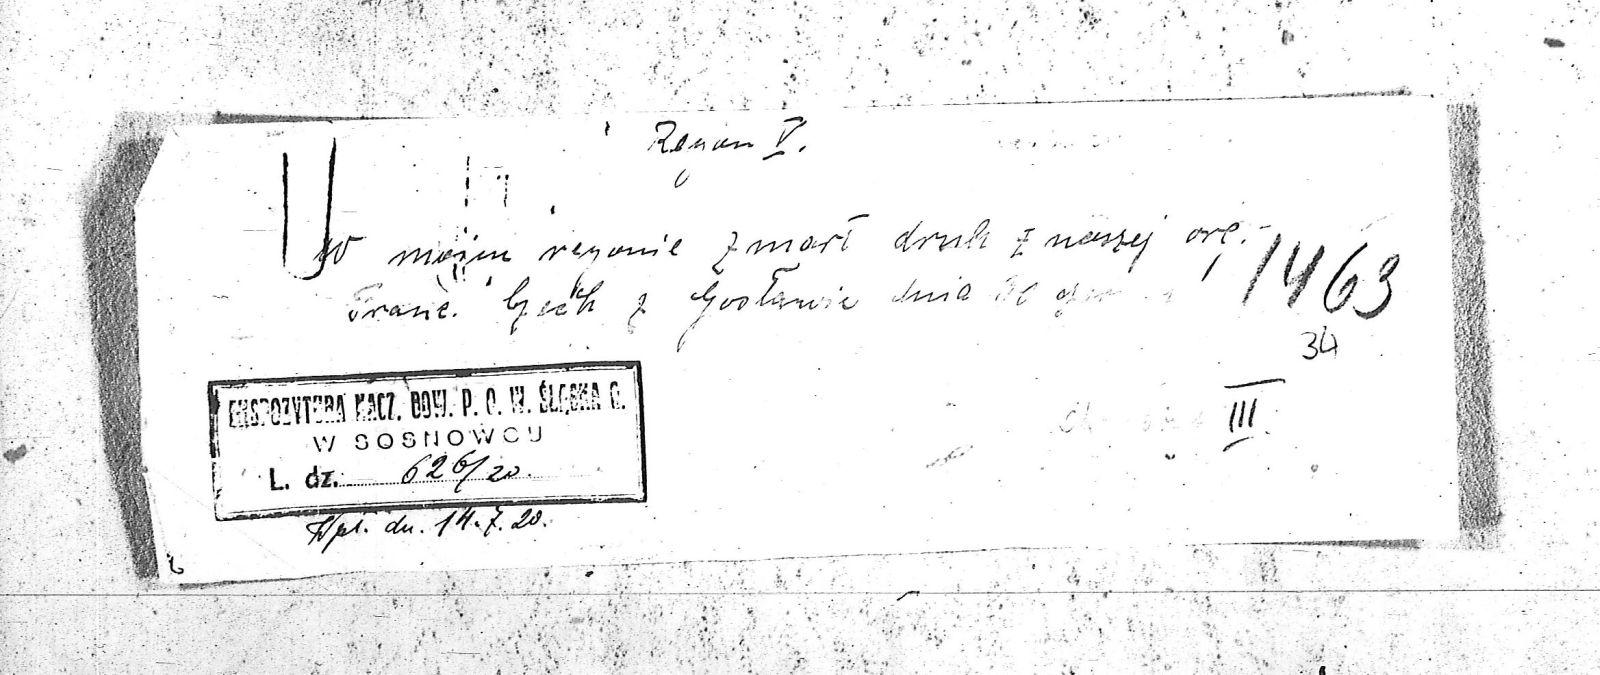 Reyon V.
W mojim reyonie zmarł druh z naszej org.
Franc. z Gosławic dnia
1463
34
III
EKSPOZYTURA NACZ. DOW. P. O. W. ŚLĄSKA G.
W SOSNOWCU
L. dz. 626/20.
Wpł. dn. 14.7.20.